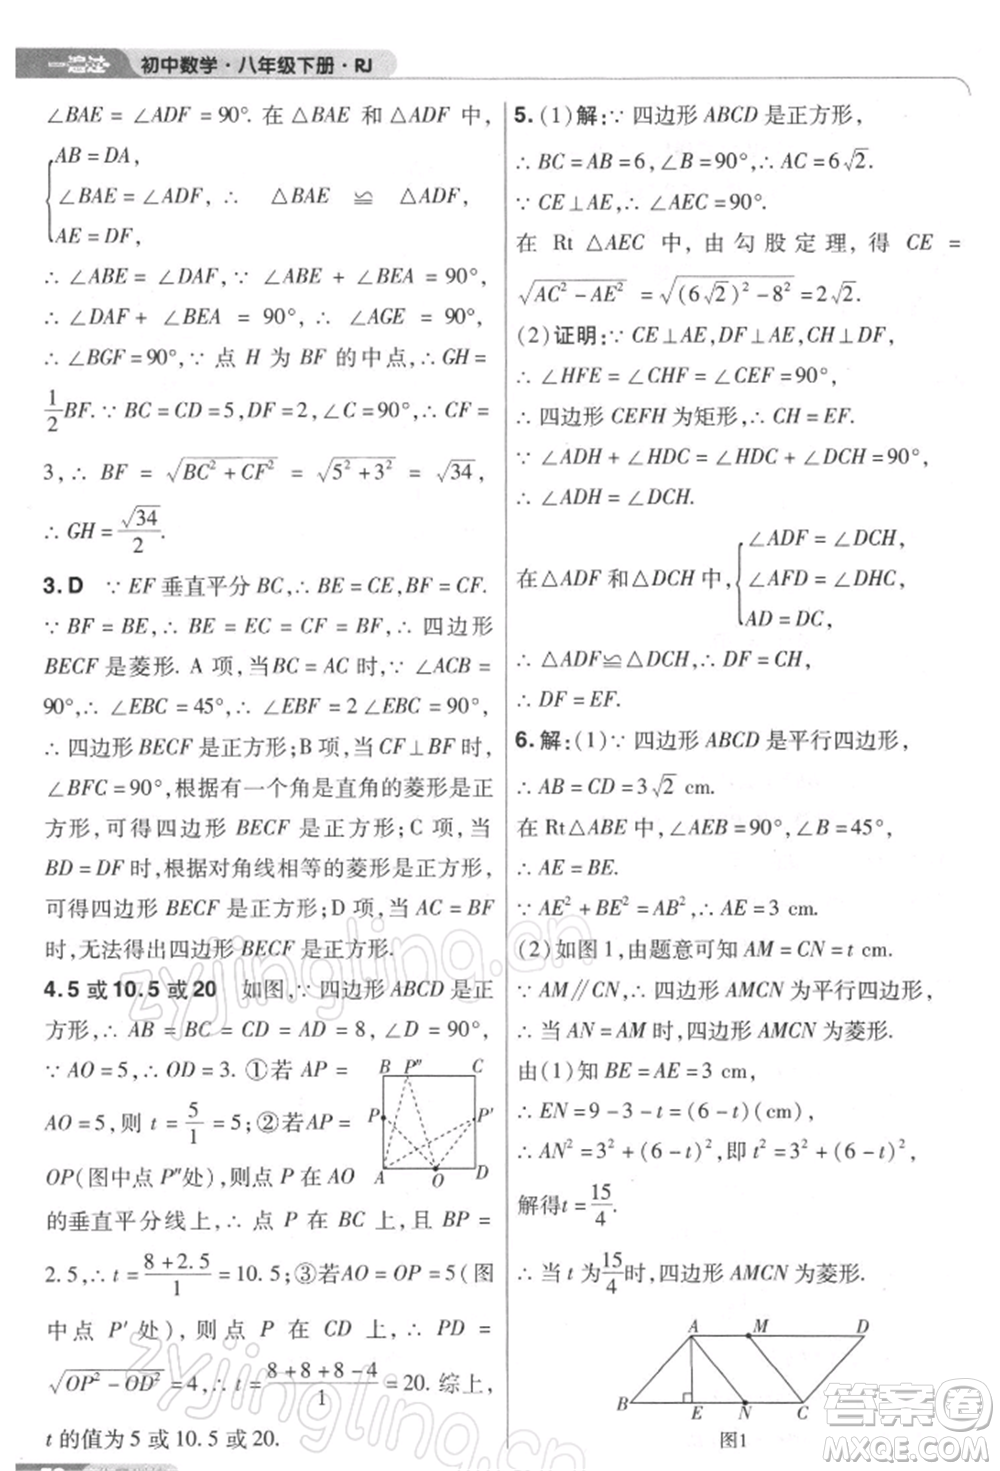 一遍过 初中数学·八年级下册·RJ
∠BAE = ∠ADF = 90°. 在 △BAE 和 △ADF 中,
{AB = DA,
∠BAE = ∠ADF, ∴ △BAE ≌ △ADF,
AE = DF,
∴ ∠ABE = ∠DAF, ∵ ∠ABE + ∠BEA = 90°,
∴ ∠DAF + ∠BEA = 90°, ∴ ∠AGE = 90°,
∴ ∠BGF = 90°, ∵ 点 H 为 BF 的中点, ∴ GH =
1/2 BF. ∵ BC = CD = 5, DF = 2, ∠C = 90°, ∴ CF =
3, ∴ BF = √(BC² + CF²) = √(5² + 3²) = √34,
∴ GH = √34/2.
3. D ∵ EF 垂直平分 BC, ∴ BE = CE, BF = CF.
∵ BF = BE, ∴ BE = EC = CF = BF, ∴ 四边形
BECF 是菱形. A 项, 当 BC = AC 时, ∵ ∠ACB =
90°, ∴ ∠EBC = 45°, ∴ ∠EBF = 2∠EBC = 90°,
∴ 四边形 BECF 是正方形; B 项, 当 CF⊥BF 时,
∠BFC = 90°, 根据有一个角是直角的菱形是正
方形, 可得四边形 BECF 是正方形; C 项, 当
BD = DF 时, 根据对角线相等的菱形是正方形,
可得四边形 BECF 是正方形; D 项, 当 AC = BF
时, 无法得出四边形 BECF 是正方形.
4. 5 或 10.5 或 20 如图, ∵ 四边形 ABCD 是正
方形, ∴ AB = BC = CD = AD = 8, ∠D = 90°,
∵ AO = 5, ∴ OD = 3. ①若 AP =
AO = 5, 则 t = 5/1 = 5; ②若 AP =
OP(图中点 P″处), 则点 P 在 AO
的垂直平分线上, ∴ 点 P 在 BC 上, 且 BP =
2.5, ∴ t = (8 + 2.5)/1 = 10.5; ③若 AO = OP = 5(图
中点 P′处), 则点 P 在 CD 上, ∴ PD =
√(OP² − OD²) = 4, ∴ t = (8 + 8 + 8 − 4)/1 = 20. 综上,
t 的值为 5 或 10.5 或 20.
B P″ C
P P′
A O D
5. (1)解: ∵ 四边形 ABCD 是正方形,
∴ BC = AB = 6, ∠B = 90°, ∴ AC = 6√2.
∵ CE⊥AE, ∴ ∠AEC = 90°.
在 Rt△AEC 中, 由勾股定理, 得 CE =
√(AC² − AE²) = √((6√2)² − 8²) = 2√2.
(2)证明: ∵ CE⊥AE, DF⊥AE, CH⊥DF,
∴ ∠HFE = ∠CHF = ∠CEF = 90°,
∴ 四边形 CEFH 为矩形, ∴ CH = EF.
∵ ∠ADH + ∠HDC = ∠HDC + ∠DCH = 90°,
∴ ∠ADH = ∠DCH.
在△ADF 和△DCH 中, {∠ADF = ∠DCH,
∠AFD = ∠DHC,
AD = DC,
∴ △ADF≌△DCH, ∴ DF = CH,
∴ DF = EF.
6. 解: (1) ∵ 四边形 ABCD 是平行四边形,
∴ AB = CD = 3√2 cm.
在 Rt△ABE 中, ∠AEB = 90°, ∠B = 45°,
∴ AE = BE.
∵ AE² + BE² = AB², ∴ AE = 3 cm.
(2) 如图 1, 由题意可知 AM = CN = t cm.
∵ AM∥CN, ∴ 四边形 AMCN 为平行四边形,
∴ 当 AN = AM 时, 四边形 AMCN 为菱形.
由(1)知 BE = AE = 3 cm,
∴ EN = 9 − 3 − t = (6 − t)(cm),
∴ AN² = 3² + (6 − t)², 即 t² = 3² + (6 − t)²,
解得t = 15/4.
∴ 当 t 为 15/4 时, 四边形 AMCN 为菱形.
A M D
B E N C
图1
zyjingling.cn
zyjingling
答案圈
MXQE.COM